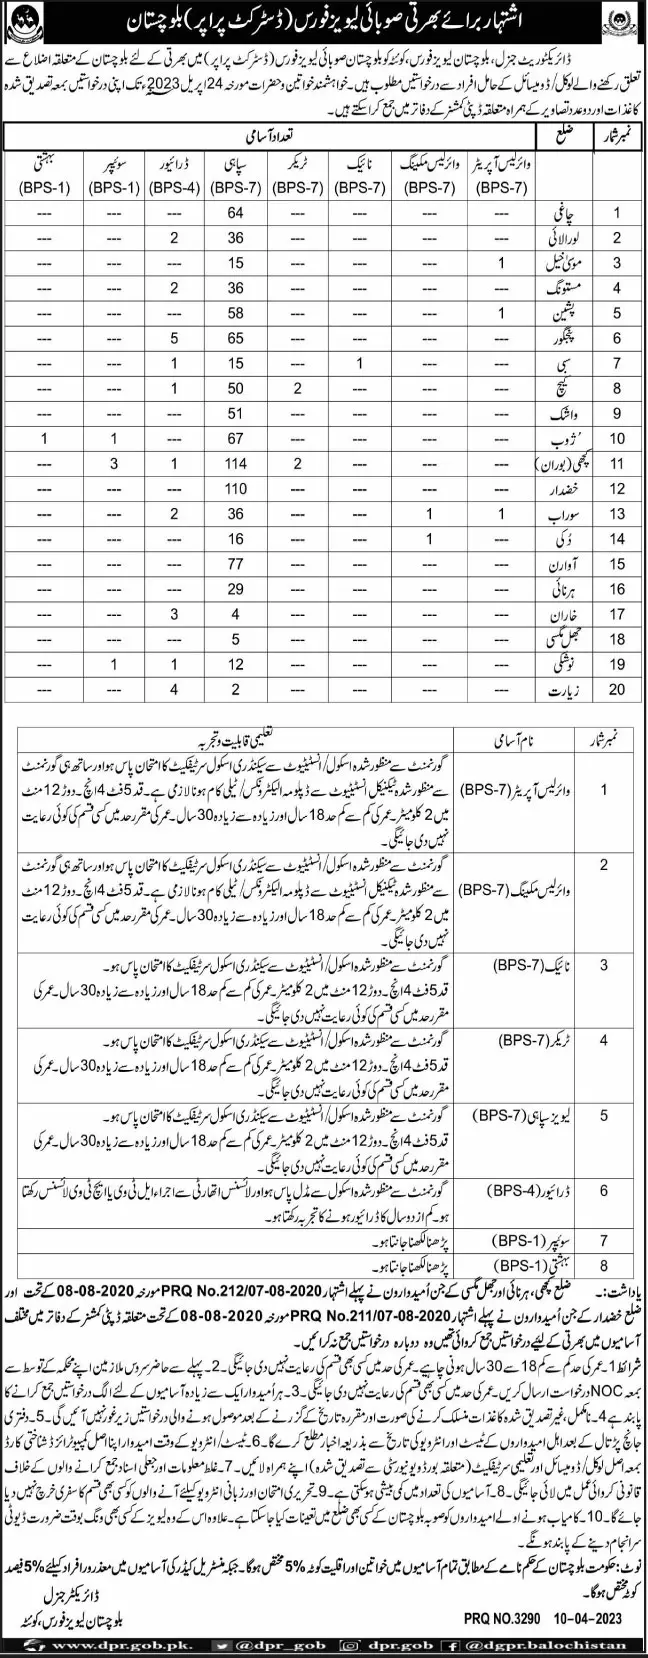 اشتہار برائے بھرتی صوبائی لیویز فورس (ڈسٹرکٹ پراپر) بلوچستان
ڈائریکٹوریٹ جنرل، بلوچستان لیویز فورس، کوئٹہ کو بلوچستان صوبائی لیویز فورس (ڈسٹرکٹ پراپر) میں بھرتی کے لئے بلوچستان کے متعلقہ اضلاع سے
تعلق رکھنے والے لوکل/ ڈومیسائل کے حامل افراد سے درخواستیں مطلوب ہیں۔ خواہشمند خواتین و حضرات مورخہ 24 اپریل 2023ء تک اپنی درخواستیں بمعہ تصدیق شدہ
کاغذات اور دو عدد تصاویر کے ہمراہ متعلقہ ڈپٹی کمشنر کے دفاتر میں جمع کرا سکتے ہیں۔
نمبر شمار ضلع تعداد آسامی
وائرلیس آپریٹر وائرلیس مکینک نائیک ٹریکر سپاہی ڈرائیور سوئیپر بہشتی
(BPS-7) (BPS-7) (BPS-7) (BPS-7) (BPS-7) (BPS-4) (BPS-1) (BPS-1)
1 چاغی --- --- --- --- 64 --- --- ---
2 لورالائی --- --- --- --- 36 2 --- ---
3 موسیٰ خیل 1 --- --- --- 15 --- --- ---
4 مستونگ --- --- --- --- 36 2 --- ---
5 پشین 1 --- --- --- 58 --- --- ---
6 پنجگور --- --- --- --- 65 5 --- ---
7 سبی --- --- 1 --- 15 1 --- ---
8 کیچ --- --- --- 2 50 1 --- ---
9 واشک --- --- --- --- 51 --- --- ---
10 ژوب --- --- --- --- 67 --- 1 1
11 کچھی (بوران) --- --- --- 2 114 1 3 ---
12 خضدار --- --- --- --- 110 --- --- ---
13 سوراب 1 1 --- --- 36 2 --- ---
14 دُکی --- 1 --- --- 16 --- --- ---
15 آواران --- --- --- --- 77 --- --- ---
16 ہرنائی --- --- --- --- 29 --- --- ---
17 خاران --- --- --- --- 4 3 --- ---
18 جھل مگسی --- --- --- --- 5 --- --- ---
19 نوشکی --- --- --- --- 12 1 1 ---
20 زیارت --- --- --- --- 2 4 --- ---
نمبر شمار نام آسامی تعلیمی قابلیت و تجربہ
1 وائرلیس آپریٹر (BPS-7) گورنمنٹ سے منظور شدہ اسکول/ انسٹیٹیوٹ سے سیکنڈری اسکول سرٹیفکیٹ کا امتحان پاس ہو اور ساتھ ہی گورنمنٹ
سے منظور شدہ ٹیکنیکل انسٹیٹیوٹ سے ڈپلومہ الیکٹرونکس/ ٹیلی کام ہونا لازمی ہے۔ قد 5 فٹ 4 انچ۔ دوڑ 12 منٹ
میں 2 کلومیٹر۔ عمر کی کم سے کم حد 18 سال اور زیادہ سے زیادہ 30 سال۔ عمر کی مقرر حد میں کسی قسم کی کوئی رعایت
نہیں دی جائیگی۔
2 وائرلیس مکینک (BPS-7) گورنمنٹ سے منظور شدہ اسکول/ انسٹیٹیوٹ سے سیکنڈری اسکول سرٹیفکیٹ کا امتحان پاس ہو اور ساتھ ہی گورنمنٹ
سے منظور شدہ ٹیکنیکل انسٹیٹیوٹ سے ڈپلومہ الیکٹرونکس/ ٹیلی کام ہونا لازمی ہے۔ قد 5 فٹ 4 انچ۔ دوڑ 12 منٹ
میں 2 کلومیٹر۔ عمر کی کم سے کم حد 18 سال اور زیادہ سے زیادہ 30 سال۔ عمر کی مقرر حد میں کسی قسم کی کوئی رعایت
نہیں دی جائیگی۔
3 نائیک (BPS-7) گورنمنٹ سے منظور شدہ اسکول/ انسٹیٹیوٹ سے سیکنڈری اسکول سرٹیفکیٹ کا امتحان پاس ہو۔
قد 5 فٹ 4 انچ۔ دوڑ 12 منٹ میں 2 کلومیٹر۔ عمر کی کم سے کم حد 18 سال اور زیادہ سے زیادہ 30 سال۔ عمر کی
مقرر حد میں کسی قسم کی کوئی رعایت نہیں دی جائیگی۔
4 ٹریکر (BPS-7) گورنمنٹ سے منظور شدہ اسکول/ انسٹیٹیوٹ سے سیکنڈری اسکول سرٹیفکیٹ کا امتحان پاس ہو۔
قد 5 فٹ 4 انچ۔ دوڑ 12 منٹ میں 2 کلومیٹر۔ عمر کی کم سے کم حد 18 سال اور زیادہ سے زیادہ 30 سال۔ عمر کی
مقرر حد میں کسی قسم کی کوئی رعایت نہیں دی جائیگی۔
5 لیویز سپاہی (BPS-7) گورنمنٹ سے منظور شدہ اسکول/ انسٹیٹیوٹ سے سیکنڈری اسکول سرٹیفکیٹ کا امتحان پاس ہو۔
قد 5 فٹ 4 انچ۔ دوڑ 12 منٹ میں 2 کلومیٹر۔ عمر کی کم سے کم حد 18 سال اور زیادہ سے زیادہ 30 سال۔ عمر کی
مقرر حد میں کسی قسم کی کوئی رعایت نہیں دی جائیگی۔
6 ڈرائیور (BPS-4) گورنمنٹ سے منظور شدہ اسکول سے مڈل پاس ہو اور لائسنس اتھارٹی سے اجراء ایل ٹی وی یا ایچ ٹی وی لائسنس رکھتا
ہو۔ کم از دو سال کا ڈرائیور ہونے کا تجربہ رکھتا ہو۔
7 سوئپر (BPS-1) پڑھنا لکھنا جانتا ہو۔
8 بہشتی (BPS-1) پڑھنا لکھنا جانتا ہو۔
یادداشت:۔ ضلع کچھی، ہرنائی اور جھل مگسی کے جن اُمیدواروں نے پہلے اشتہار PRQ No.212/07-08-2020 مورخہ 08-08-2020 کے تحت اور
ضلع خضدار کے جن اُمیدواروں نے پہلے اشتہار PRQ No.211/07-08-2020 مورخہ 08-08-2020 کے تحت متعلقہ ڈپٹی کمشنر کے دفاتر میں مختلف
آسامیوں میں بھرتی کے لیئے درخواستیں جمع کروائی تھیں وہ دوبارہ درخواستیں جمع نہ کرائیں۔
شرائط 1۔ عمر کی حد کم سے کم 18 سے 30 سال ہونی چاہیے۔ عمر کی حد میں کسی بھی قسم کی رعایت نہیں دی جائیگی۔ 2۔ پہلے سے حاضر سروس ملازمین اپنے محکمہ کے توسط سے
بمعہ NOC درخواست ارسال کریں۔ عمر کی حد میں کسی بھی قسم کی رعایت نہیں دی جائیگی۔ 3۔ ہر اُمیدوار ایک سے زیادہ آسامیوں کے لئے الگ درخواستیں جمع کرانے کا
پابند ہے 4۔ نامکمل، غیر تصدیق شدہ کاغذات منسلک کرنے کی صورت اور مقررہ تاریخ کے گزرنے کے بعد موصول ہونے والی درخواستیں زیر غور نہیں آئیں گی۔ 5۔ دفتری
جانچ پڑتال کے بعد اہل امیدواروں کے ٹیسٹ اور انٹرویو کی تاریخ سے بذریعہ اخبار مطلع کرے گا۔ 6۔ ٹیسٹ/ انٹرویو کے وقت امیدوار اپنا اصل کمپیوٹرائزڈ شناختی کارڈ
بمعہ اصل لوکل/ ڈومیسائل اور تعلیمی سرٹیفکیٹ (متعلقہ بورڈ و یونیورسٹی سے تصدیق شدہ) اپنے ہمراہ لائیں۔ 7۔ غلط معلومات اور جعلی اسناد جمع کرانے والوں کے خلاف
قانونی کروائی عمل میں لائی جائیگی۔ 8۔ آسامیوں کی تعداد میں کمی بیشی ہو سکتی ہے۔ 9۔ تحریری امتحان اور زبانی انٹرویو کیلئے آنے والوں کو کسی بھی قسم کا سفری خرچ نہیں دیا
جائے گا۔ 10۔ کامیاب ہونے والے امیدواروں کو صوبہ بلوچستان کے کسی بھی ضلع میں تعینات کیا جا سکتا ہے۔ علاوہ اس کے وہ لیویز کے کسی بھی ونگ بوقت ضرورت ڈیوٹی
سرانجام دینے کے پابند ہونگے۔
نوٹ: حکومت بلوچستان کے حکم نامے کے مطابق تمام آسامیوں میں خواتین اور اقلیت کوٹہ 5% مختص ہوگا۔ جبکہ منسٹریل کیڈر کی آسامیوں میں معذور افراد کیلئے 5% فیصد
کوٹہ مختص ہوگا۔
ڈائریکٹر جنرل
بلوچستان لیویز فورس، کوئٹہ
PRQ NO.3290 10-04-2023
www.dpr.gob.pk. @dpr_gob dpr.gob @dgpr.balochistan